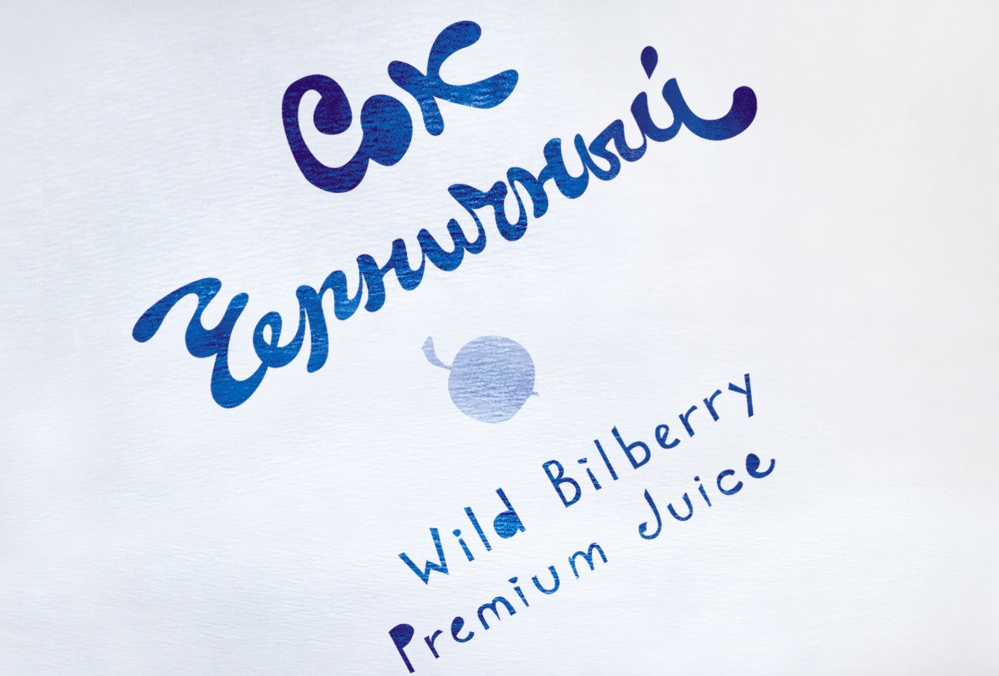 Сок
Черничный
Wild Bilberry
Premium Juice